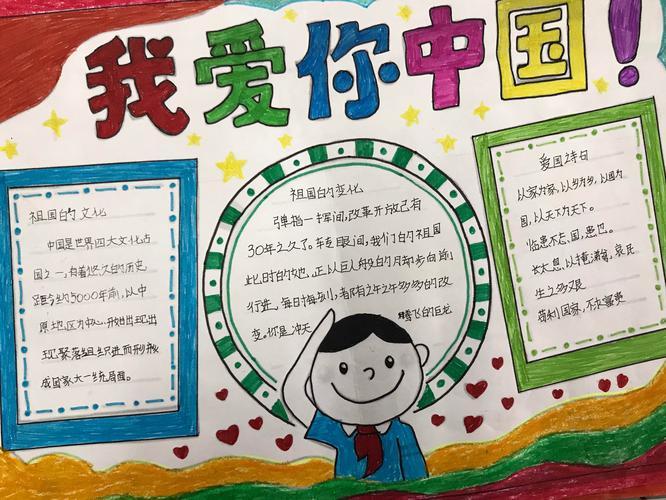 我爱你中国!
祖国的文化
中国是世界四大文化占
国之一,有着悠久的历史
距今约5000年前,以中
原地区为中心,开始出现出
现聚落组织进而形成
成国家大一统局面。
祖国的变化
弹指一挥间,改革开放已有
30年之久了。转眼间,我们的祖国
此时的她,正以巨人般的步向前
行进,每日每刻,都有之许多多的改
变。你是冲天
腾飞的巨龙
爱国诗句
以家为家,以乡为乡,以国为
国,以天下为天下。
临患不忘国,忠也。
长太息以掩涕兮,哀民
生之多艰
苟利国家,不求富贵